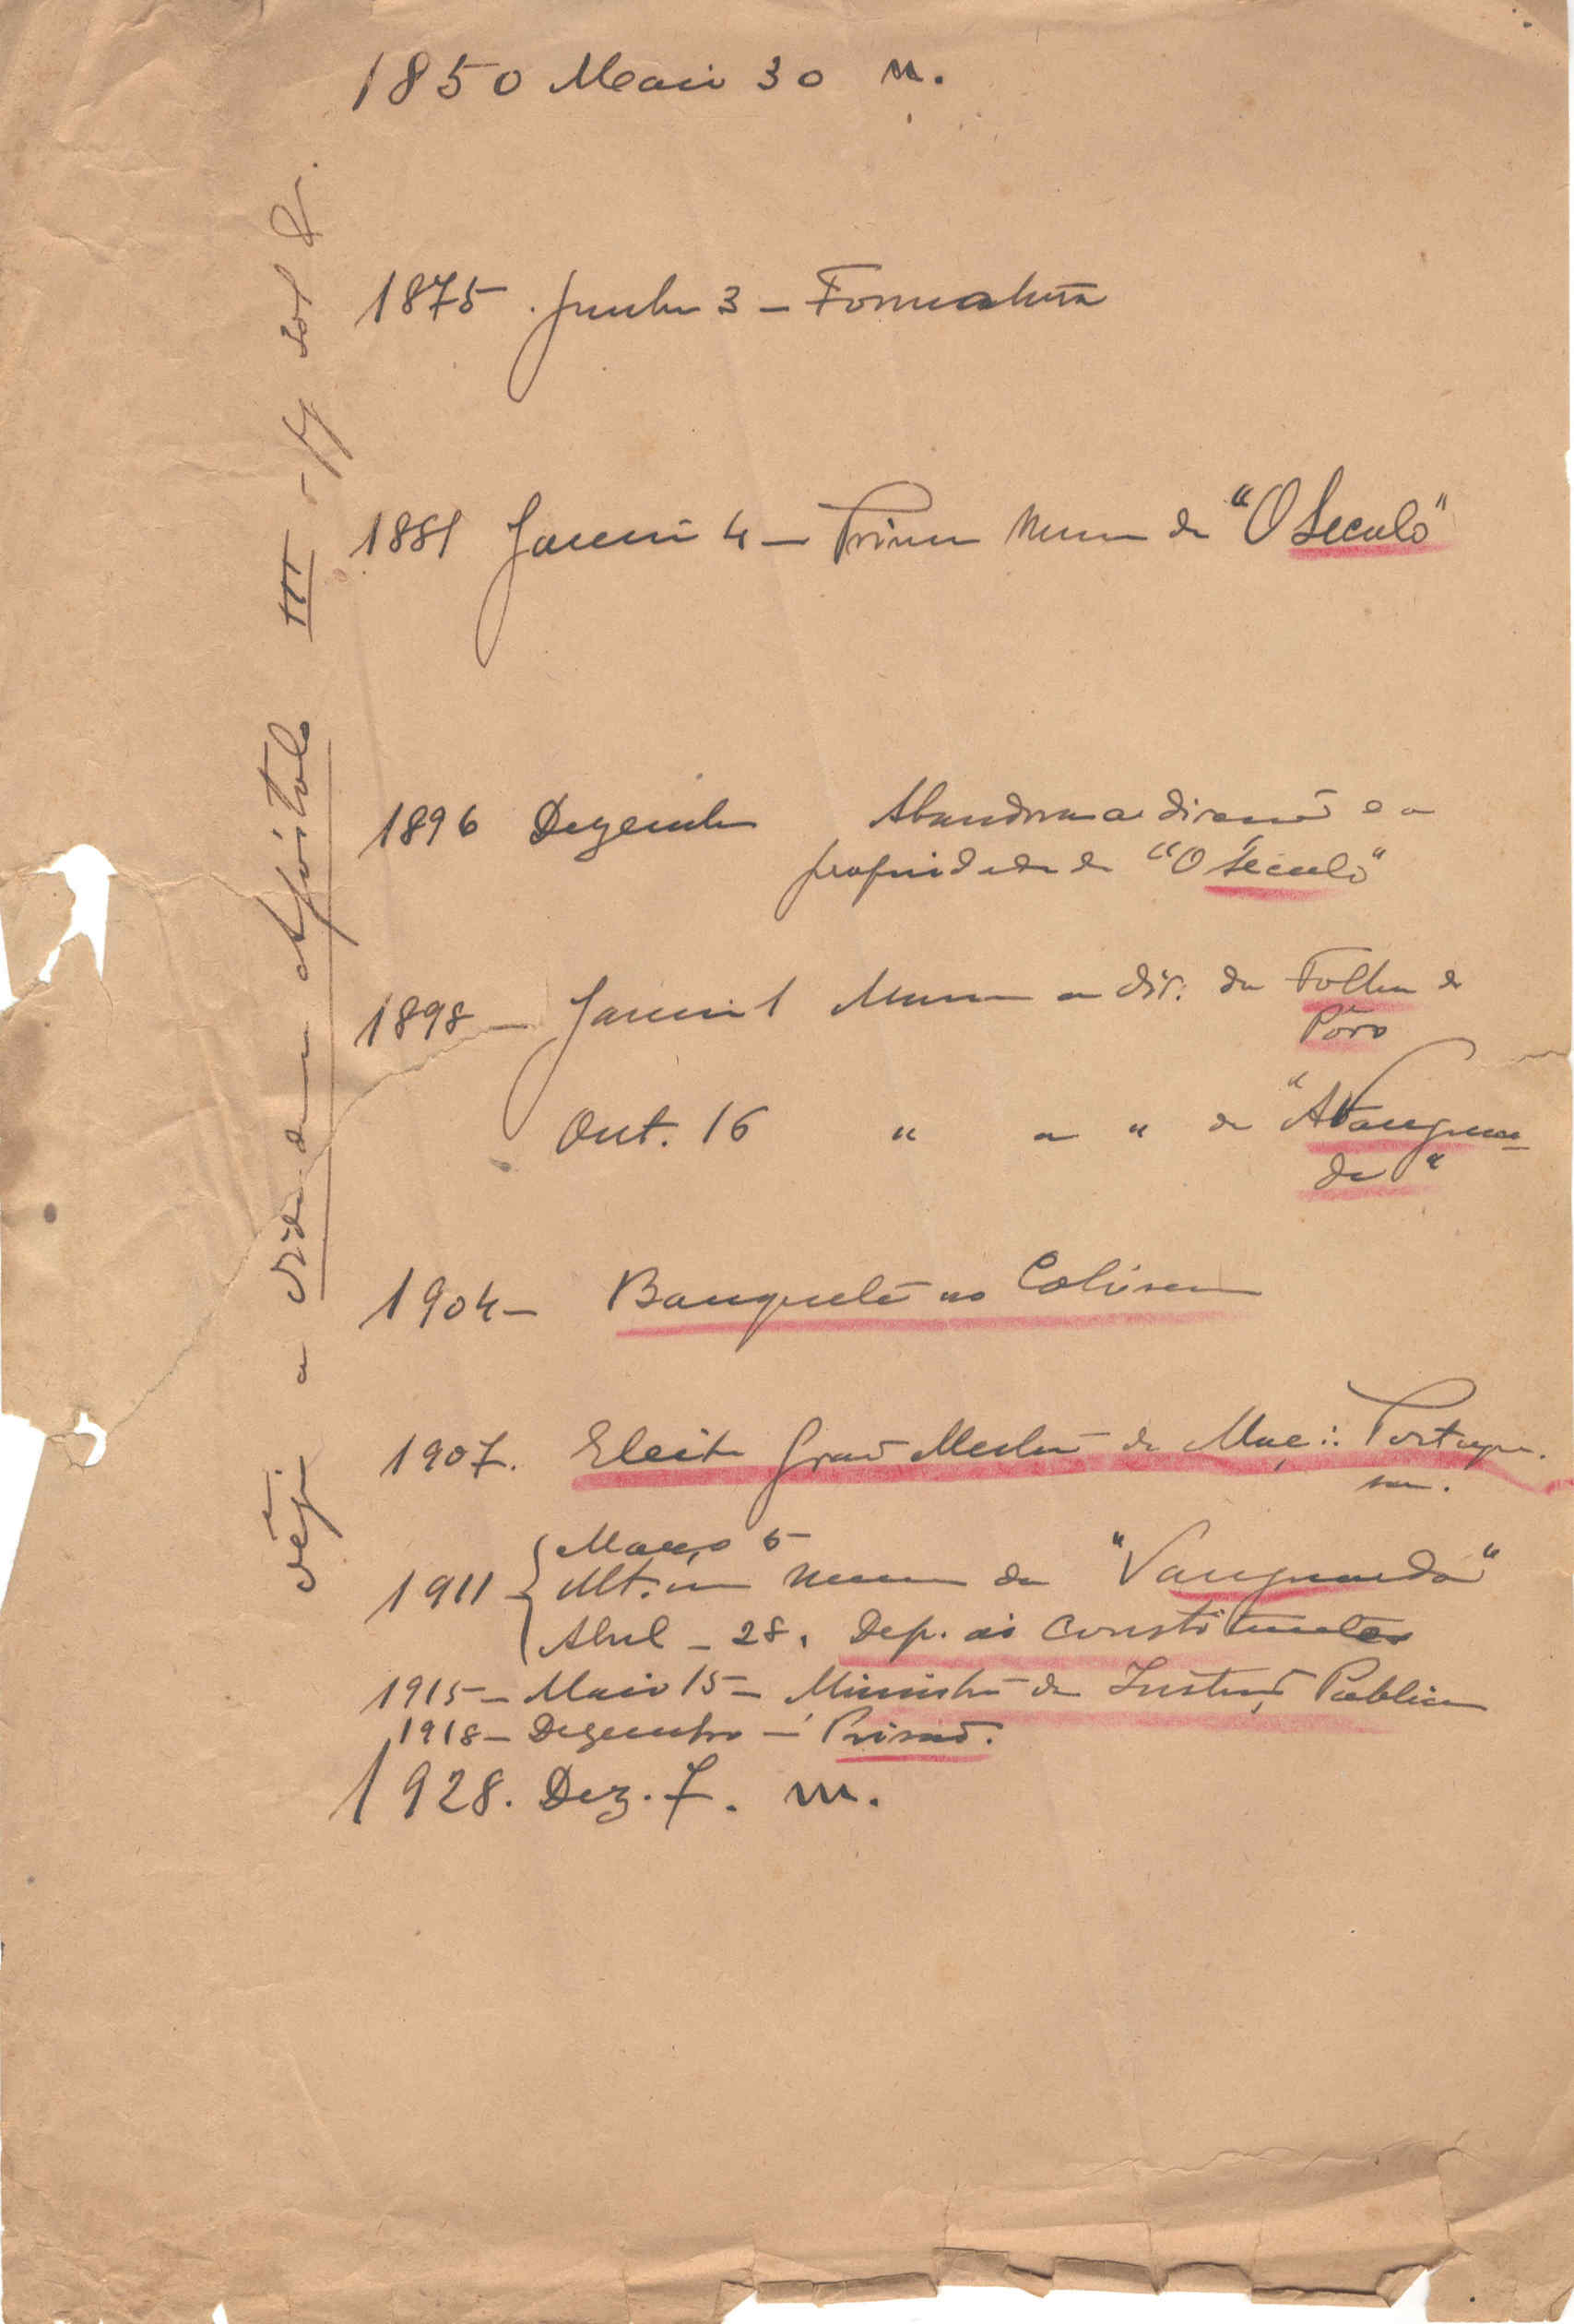 1850 Maio 30 n.
1875. Junho 3 - Formatura
1881 Janeiro 4 - Primeiro Numero de "O Seculo"
1896 Dezembro Abandona a direção e a
propriedade de "O Seculo"
1898 - Janeiro 1 Assume a dir. da Folha do
Povo
Out. 16 " a " da "A Vanguar-
da"
1904 - Banquete no Coliseu
1907. Eleito Grão Mestre da Maç∴ Portugue-
sa.
Março 5
1911 - Ultimo numero da "Vanguarda"
Abril - 28. Dep. ás Constituintes
1915 - Maio 15 - Ministro da Instrução Publica
1918 - Dezembro - Prisão.
1928. Dez. 7. m.
Vêja a Vida dum Apóstolo III -